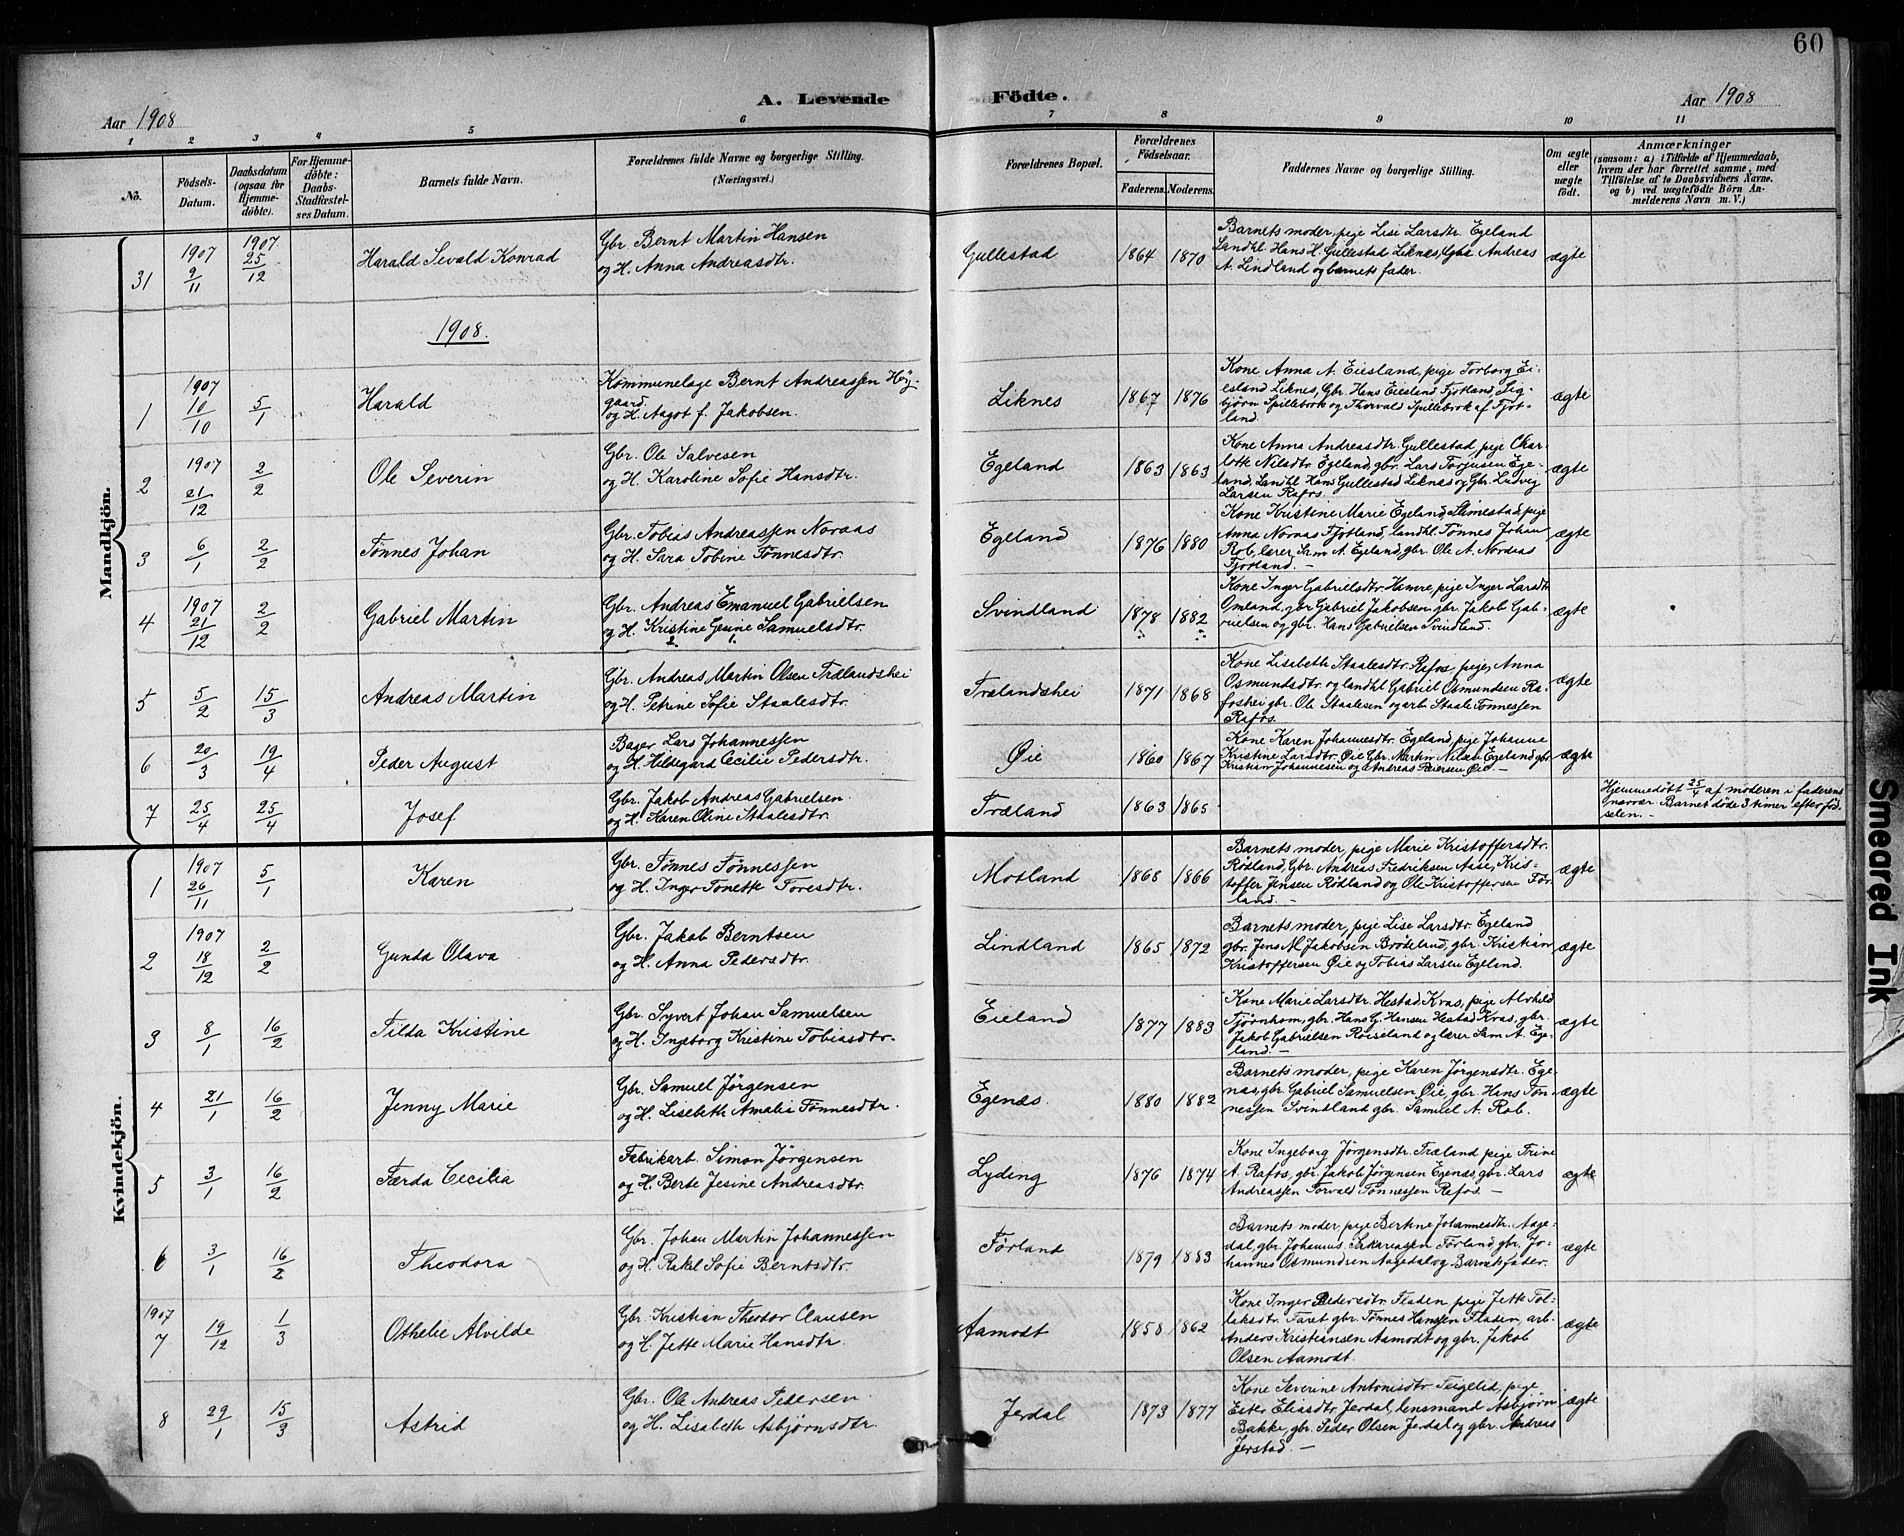 60
Aar 1908
A. Levende
Födte.
Aar 1908
1 2 3 4 5 6 7 8 9 10 11
No.
Födsels-Datum.
Daabsdatum (ogsaa for Hjemme-döbte).
For Hjemme-döbte: Daabs-Stadfæstel-ses Datum.
Barnets fulde Navn.
Forældrenes fulde Navne og borgerlige Stilling. (Næringsvei.)
Forældrenes Bopæl.
Forældrenes Födselsaar.
Faderens. Moderens.
Faddernes Navne og borgerlige Stilling.
Om ægte eller uægte födt.
Anmærkninger
(saasom: a) i Tilfælde af Hjemmedaab,
hvem der har forrettet samme, med
Tilföielse af to Daabsvidners Navne.
og b) ved uægtefödte Börn An-
melderens Navn m. V.)
Mandkjön.
31 1907 9/11 1907 25/12 Harald Sevald Konrad
Gbr. Bernt Martin Hansen
og H. Anna Andreasdtr.
Gullestad 1864 1870
Barnets moder, pige Lise Larsdtr. Egeland
Landhl. Hans H. Gullestad Liknes, Gbr. Andreas
A. Lindland og barnets fader.
ægte
1908.
1 1907 10/10 5/1 Harald
Kommunelæge Bernt Andreassen Høy-
gaard
og H. Aagot f. Jakobsen.
Liknes 1867 1876
Kone Anna A. Eiesland, pige Torborg Ei-
esland Liknes, Gbr. Hans Eiesland Fjotland, Sig-
bjørn Spillebrok og Thorvald Spillebrok af Fjot-
land.
ægte
2 1907 21/12 2/2 Ole Severin
Gbr. Ole Salvesen
og H. Karoline Sofie Hansdtr.
Egeland 1863 1863
Kone Anna Andreasdtr. Gullestad, pige Char-
lotte Nilsdtr. Egeland, gbr. Lars Torjusen Ege-
land, Landhl. Hans Gullestad Liknes og Gbr. Ludvig
Larsen Rafos.
ægte
3 6/1 2/2 Tønnes Johan
Gbr. Tobias Andreassen Noraas
og H. Sara Tobine Tønnesdtr.
Egeland 1876 1880
Kone Kristine Marie Egeland, pige
Anna Noraas Fjotland, landhl. Tønnes Johan
Rob, lærer Sam A. Egeland, gbr. Ole A. Noraas
Fjotland. —
ægte
4 1907 21/12 2/2 Gabriel Martin
Gbr. Andreas Emanuel Gabrielsen
og H. Kristine Gesine Samuelsdtr.
2 1.
Svindland 1878 1882
Kone Inger Gabrielsdtr. Hamre, pige Inger Larsdtr.
Omland, gbr Gabriel Jakobsen, gbr. Jakob Gab-
rielsen og gbr. Hans Gabrielsen Svindland.
ægte
5 5/2 15/3 Andreas Martin
Gbr. Andreas Martin Olsen Trælandshei
og H. Petrine Sofie Staalesdtr.
Trælandshei 1871 1868
Kone Lisabeth Staalesdtr. Rafos, pige, Anna
Osmundsdtr. og landhl Gabriel Osmundsen Ra-
foshei gbr. Ole Staalesen og arb. Staale Tønnessen
Rafos.
ægte
6 20/3 19/4 Peder August
Bager Lars Johannessen
og H. Hildegard Cecilie Pedersdtr.
Øie 1860 1867
Kone Karen Johannesdtr. Egeland, pige Johanne
Kristine Larsdtr. Øie Gbr. Martin Nilsen Egeland gbr
Kristian Johannesen og Andreas Pedersen Øie. —
ægte
7 25/4 25/4 Josef
Gbr. Jakob Andreas Gabrielsen.
og H. Karen Oline Staalesdtr.
Træland 1863 1865
Hjemmedøbt 25/4 af moderen i faderens
nærvær. Barnet døde 3 timer efter fød-
selen. —
Kvindekjön.
1 1907 26/11 5/1 Karen
Gbr. Tønnes Tønnessen
og H. Inger Tonette Toresdtr.
Moland 1868 1866
Barnets moder, pige Marie Kristoffersdtr.
Rødland, Gbr. Andreas Fredriksen Aase, Kris-
toffer Jensen Rødland og Ole Kristoffersen Før-
land. —
ægte
2 1907 18/12 2/2 Gunda Olava
Gbr. Jakob Berntsen
og H. Anna Pedersdtr.
Lindland 1865 1872
Barnets moder, pige Lise Larsdtr. Egeland
gbr. Jens M. Jakobsen Brødeland, gbr. Kristian
Kristoffersen Øie og Tobias Larsen Egeland.
ægte
3 8/1 16/2 Tilda Kristine
Gbr. Syvert Johan Samuelsen
og H. Ingeborg Kristine Tobiasdtr.
Eieland 1877 1883
Kone Marie Larsdtr. Hestad Kvas, pige Alvhild
Tjørnhom, gbr. Hans G. Hansen Hestad Kvas, gbr.
Jakob Gabrielsen Røiseland og lærer Sam A. Ege-
land. —
ægte
4 21/1 16/2 Jenny Marie
Gbr. Samuel Jørgensen
og H. Lisebeth Amalie Tønnesdtr.
Egenæs. 1880 1882
Barnets moder, pige Karen Jørgensdtr. Ege-
næs, gbr. Gabriel Samuelsen Øie, gbr. Hans Tøn-
nessen Svindland gbr. Samuel A. Rob.
ægte
5 3/1 16/2 Færda Cecilia
Fabrikarb. Simon Jørgensen
og H. Berte Jesine Andreasdtr.
Lyding 1876 1874
Kone Ingeborg Jørgensdtr. Træland pige Trine
A. Rafos, gbr. Jakob Jørgensen Egenæs, gbr. Lars
Andreassen Torvald Tønnessen Rafos. —
ægte
6 3/1 16/2 Theodora
Gbr. Johan Martin Johannessen
og H. Rakel Sofie Berntsdtr.
Førland 1879 1883
Barnets moder, pige Bertine Johannesdtr. Aage-
dal, gbr. Johannes Sakariassen Førland, gbr. Jo-
hannes Osmundsen Aagedal og Barnets fader.
ægte
1907
7 19/12 1/3 Othelie Alvilde
Gbr. Kristian Theodor Clausen
og H. Jette Marie Hansdtr.
Aamodt 1858 1862
Kone Inger Pedersdtr. Fladen, pige Jette Tol-
laksdtr. Faret gbr. Tønnes Hanssen Fladen, arb.
Anders Kristiansen Aamodt og gbr. Jakob
Olsen Aamodt.
ægte
8 29/1 15/3 Astrid
Gbr. Ole Andreas Pedersen
og H. Lisabeth Asbjørnsdtr.
Jerdal 1873 1877
Kone Severine Antonisdtr. Teigelid, pige
Ester Eliasdtr Jerdal, lensmand Asbjørn
Bakke, gbr. Peder Olsen Jerdal og gbr. Andreas
Jerstad. —
ægte
Smeared Ink